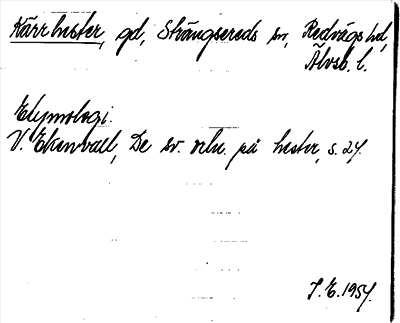 Kärrhester, gd, Strängsereds sn, Redvägs hd,
Älvsb. l.
Etymologi.
V. Ekenvall, De sv. ortn. på hester, s. 24.
J. E. 1954.